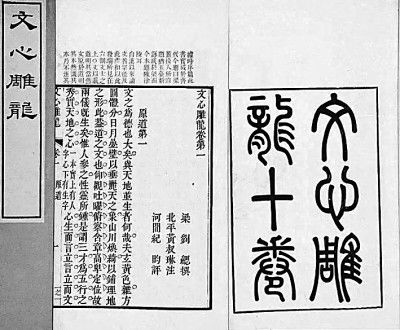 文心雕
龍十卷
文心雕龍卷第一
梁 劉勰撰
北平黃叔琳注
河間紀昀評
原道第一
文之為德也大矣與天地並生者何哉夫玄黃色雜方
圓體分日月疊璧以垂麗天之象山川煥綺以鋪理地
之形此蓋道之文也仰觀吐曜俯察含章高卑定位故
兩儀既生矣惟人參之性靈所鍾是謂三才為五行之
秀實天地之心一本實上有人字心下有生字心生而言立言立而文
文心雕龍 卷一 原道
文心雕龍